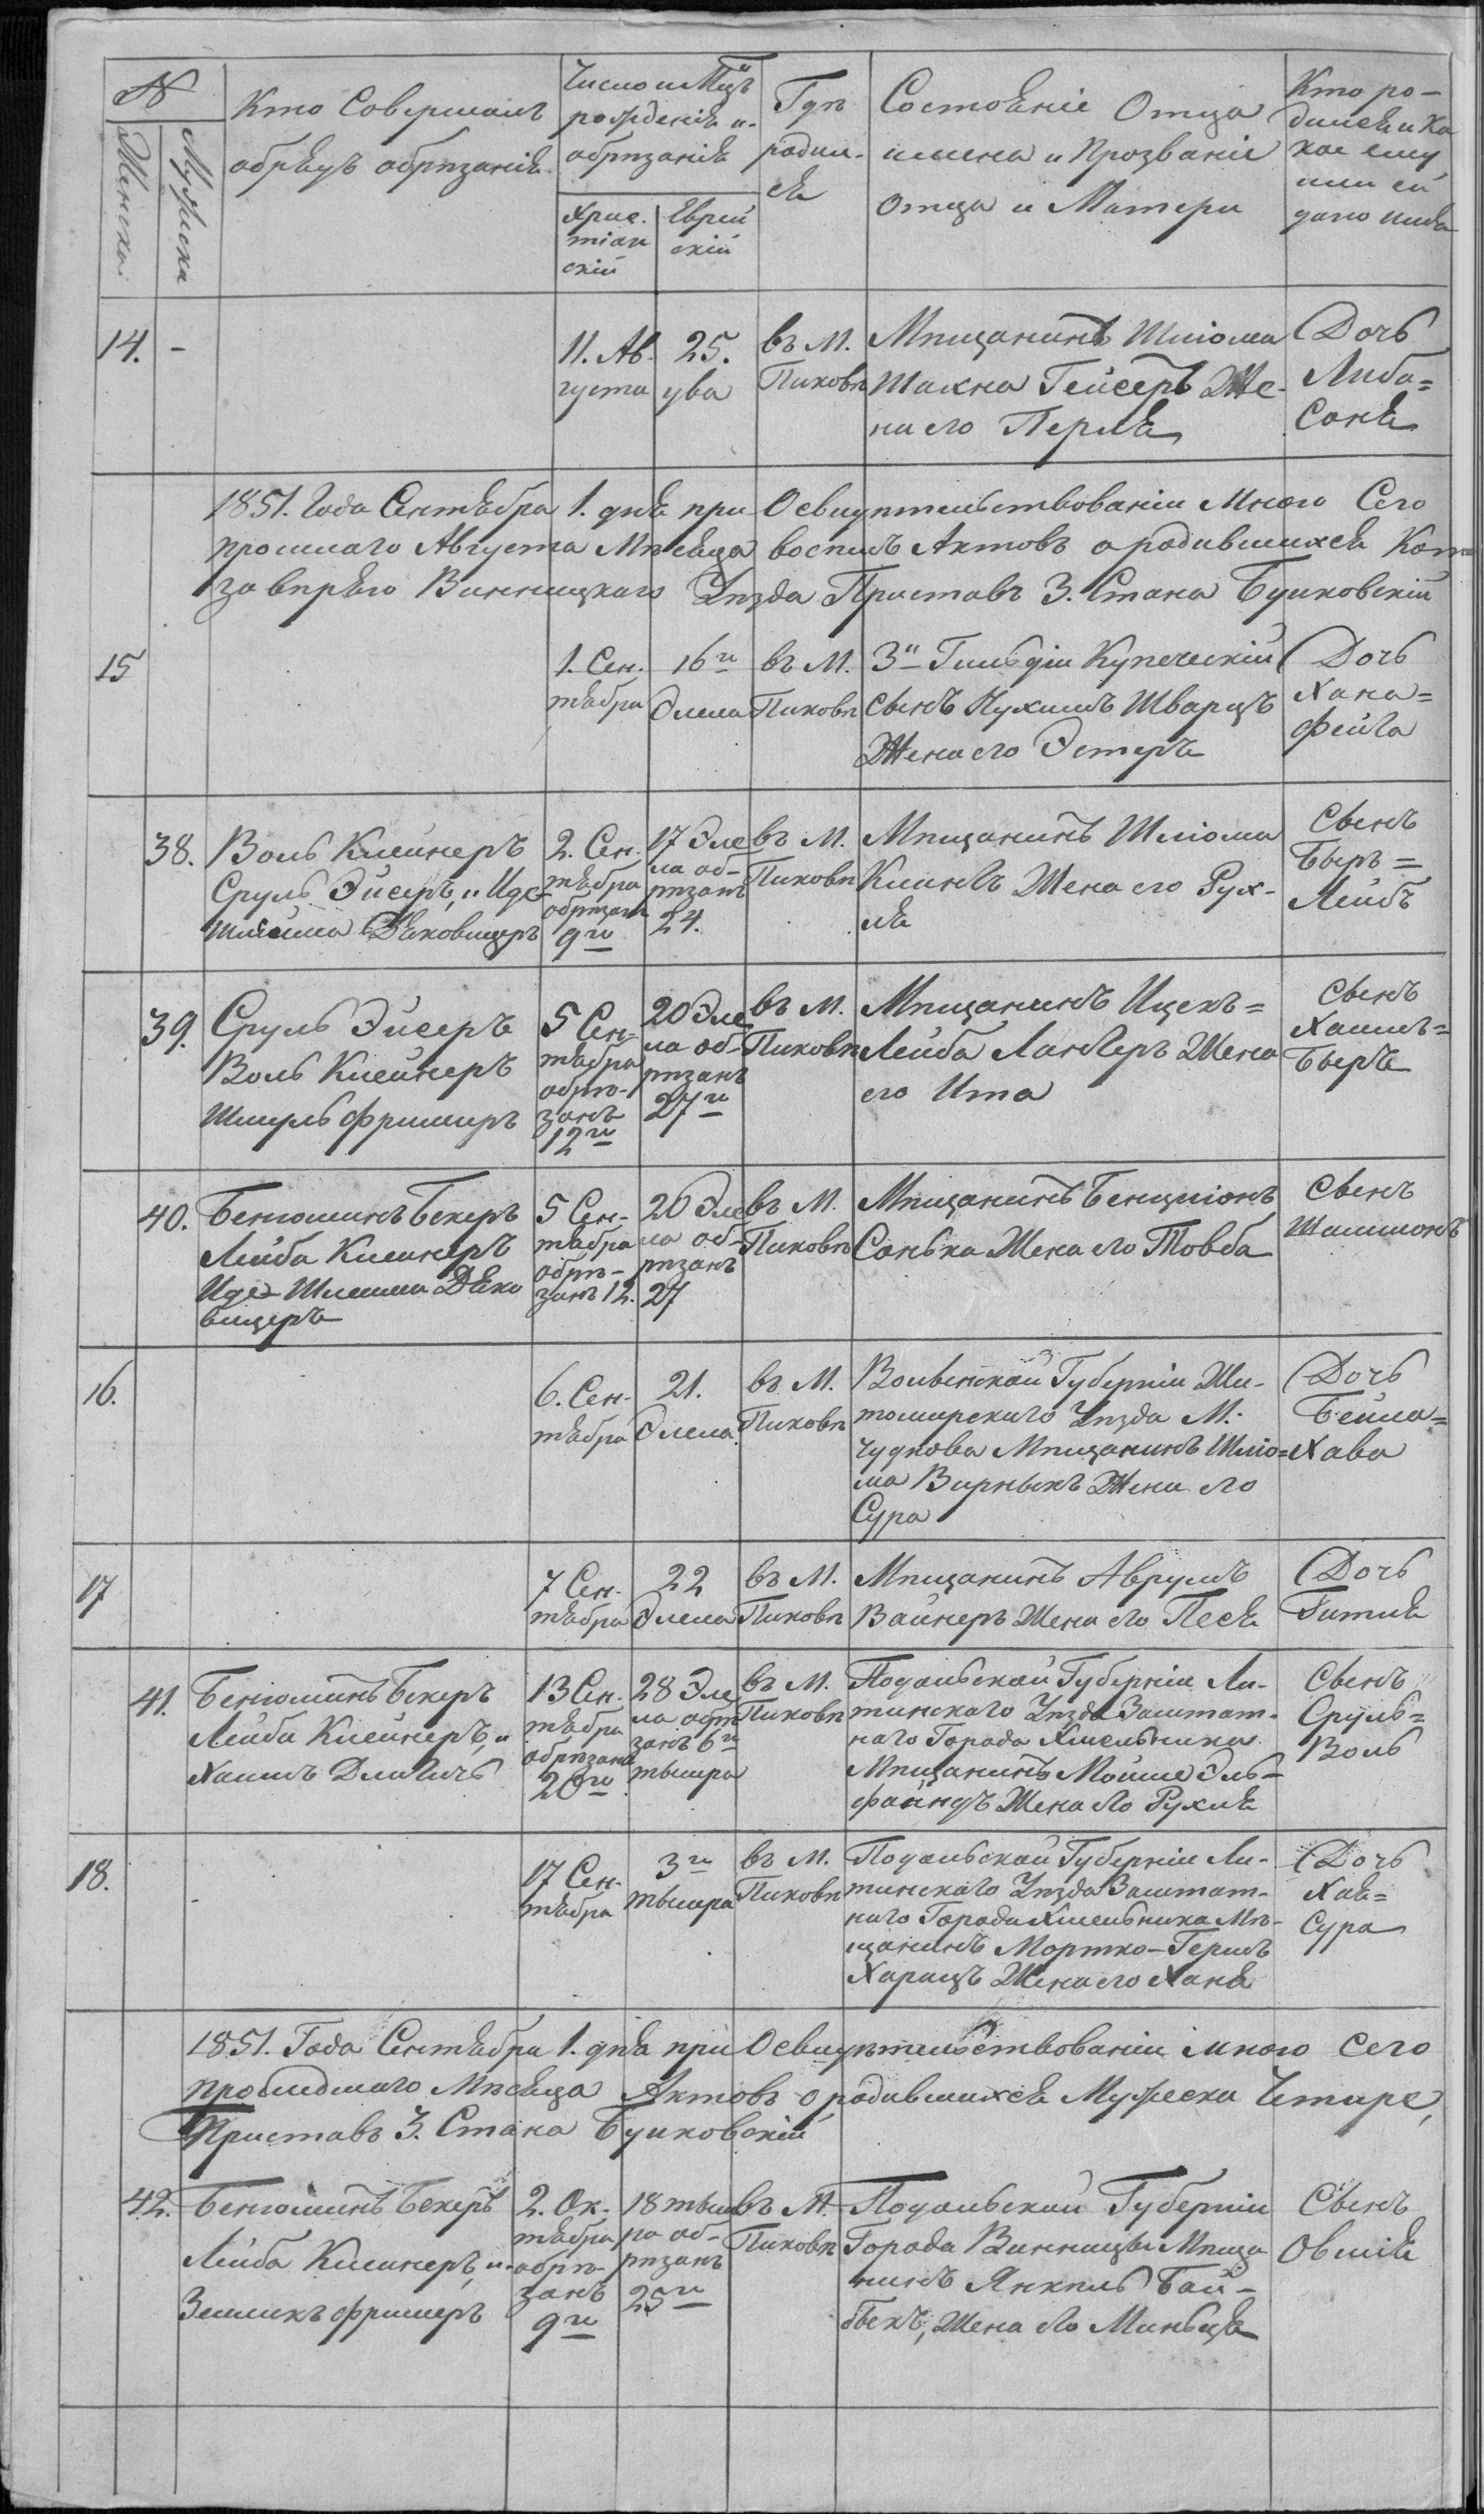 №
Женска
Мужеска
Кто Совершалъ
обрядъ обрѣзанія
Число и Мцъ
рожденія и
обрѣзанія
Хрис.
тіан
скій
Еврей
скій
Гдѣ
родил-
ся
Состояніе Отца
имена и Прозваніе
отца и Матери
Кто ро-
дился и ка
кое ему
или ей
дано имя
14. -
11. Ав-
густа
25.
ува
въ М.
Пиковѣ
Мѣщанинъ Шліома
Шахна Гейсеръ Же-
на его Перля
Дочь
Либа=
Соня
1851. Года Сентября 1. дня при Освидѣтельствованіи Мною Сего
прошлаго Августа Мѣсяца восемь Актовъ о родившихся
Винницкаго Уѣзда Приставъ 3. Стана Бушковскій
15
1. Сен-
тября
16го
Элела
въ М.
Пиковѣ
3й Гильдіи Купеческій
сынъ Нухимъ Шварцъ
Жена его Эстеръ
Дочь
Хана=
Фейга
38.
Воль Клейнеръ
Сруль Эйсеръ, и Иде-
Шлёма Дяковицеръ
2. Сен-
тября
обрѣзанъ
9го
17 Эле
ла об-
рѣзанъ
24.
въ М.
Пиковѣ
Мѣщанинъ Шліома
Клинъ Жена его Рух-
ля
Сынъ
Беръ=
Лейбъ
39.
Сруль Эйсеръ
Воль Клейнеръ
Шмуль Фришеръ
5 Сен-
тября
обрѣ-
занъ
12го
20 Эле
ла об-
рѣзанъ
27го
въ М.
Пиковѣ
Мѣщанинъ Ицекъ=
Лейба Лангеръ Жена
его Ита
Сынъ
Хаимъ=
Беръ
40.
Бенюминъ Бекеръ
Лейба Клейнеръ
Иде-Шлёма Дяко
вицеръ
5 Сен-
тября
обрѣ-
занъ 12.
20 Эле
ла об-
рѣзанъ
27
въ М.
Пиковѣ
Мѣщанинъ Бенціонъ
Санька Жена его Товба
Сынъ
Шлимонъ
16.
6. Сен-
тября
21.
Элела
въ М.
Пиковѣ
Волынской Губерніи Жи-
томирскаго Уѣзда М.
Чуднова Мѣщанинъ Шліо=
ма Вирныкъ Жена его
Сура
Дочь
Бейла=
Хава
17
7 Сен-
тября
22
Элела
въ М.
Пиковѣ
Мѣщанинъ Аврумъ
Вайнеръ Жена его Песя
Дочь
Гитля
41.
Бенюминъ Бекеръ
Лейба Клейнеръ, и
Хаимъ Длигачъ
13 Сен-
тября
обрѣзанъ
20го
28 Эле
ла обрѣ
занъ 6го
тышра
въ М.
Пиковѣ
Подольской Губерніи Ли-
тинскаго Уѣзда Заштат-
наго Города Хмельника
Мѣщанинъ Мойше Эль-
файндъ Жена его Рухля
Сынъ
Сруль=
Воль
18.
17 Сен-
тября
3го
тышра
въ М.
Пиковѣ
Подольской Губерніи Ли-
тинскаго Уѣзда Заштат-
наго Города Хмельника Мѣ-
щанинъ Мортко-Гершъ
Харацъ Жена его Ханя
Дочь
Хая=
Сура
1851. Года Сентября 1. дня при Освидѣтельствованіи мною Сего
прошедшаго Мѣсяца Актовъ о родившихся Мужеска Четыре,
Приставъ 3. Стана Бушковскій
42.
Бенюминъ Бекеръ
Лейба Клейнеръ, и
Зейликъ Фришеръ
2. Ок-
тября
обрѣ-
занъ
9го
18 тыш
ра об-
рѣзанъ
25го
въ М.
Пиковѣ
Подольской Губерніи
Города Винницы Мѣща
нинъ Янкель Бай-
быкъ, Жена его Миньця
Сынъ
Овшія